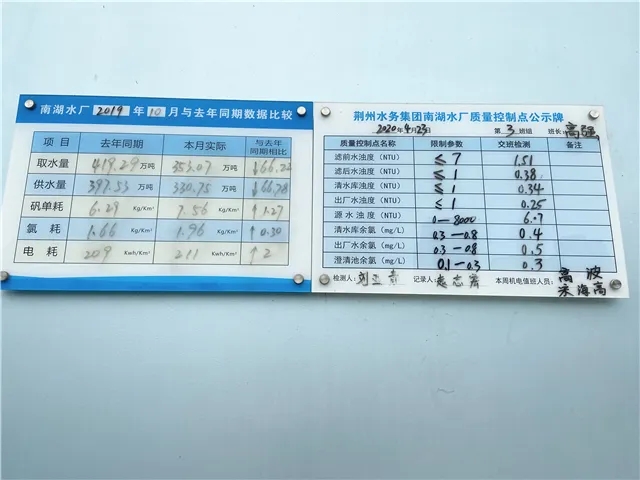 南湖水厂 2019 年 10 月与去年同期数据比较
项目 去年同期 本月实际 与去年同期相比
取水量 419.29 万吨 353.07 万吨 ↓66.22
供水量 397.53 万吨 330.75 万吨 ↓66.78
矾单耗 6.29 Kg/Km³ 7.56 Kg/Km³ ↑1.27
氯耗 1.66 Kg/Km³ 1.96 Kg/Km³ ↑0.30
电耗 209 Kwh/Km³ 211 Kwh/Km³ ↑2
荆州水务集团南湖水厂质量控制点公示牌
2020年4月23日 第 3 班组 班长:高强
质量控制点名称 限制参数 交班检测 备注
滤前水浊度(NTU) ≤7 1.51
滤后水浊度(NTU) ≤1 0.38
清水库浊度(NTU) ≤1 0.34
出厂水浊度(NTU) ≤1 0.25
源水浊度(NTU) 0—8000 6.7
清水库余氯(mg/L) 0.3—0.8 0.4
出厂水余氯(mg/L) 0.3—0.8 0.5
澄清池余氯(mg/L) 0.1—0.3 0.3
检测人:刘 记录人:志 本周机电值班人员:高波
海高